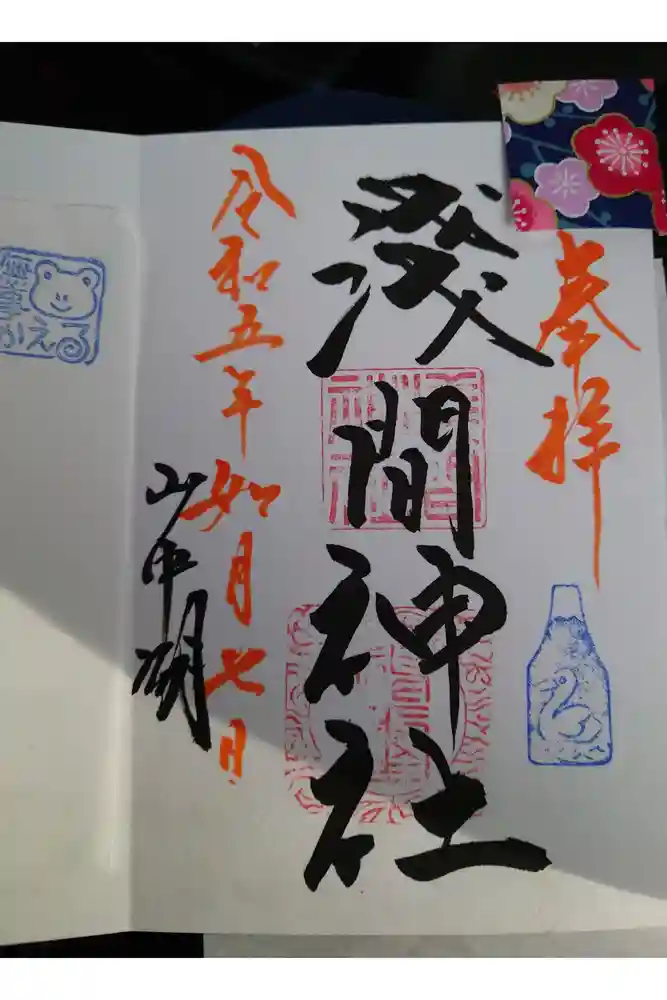 奉拝
淺間神社
令和五年如月七日
山中湖
無事
かえる